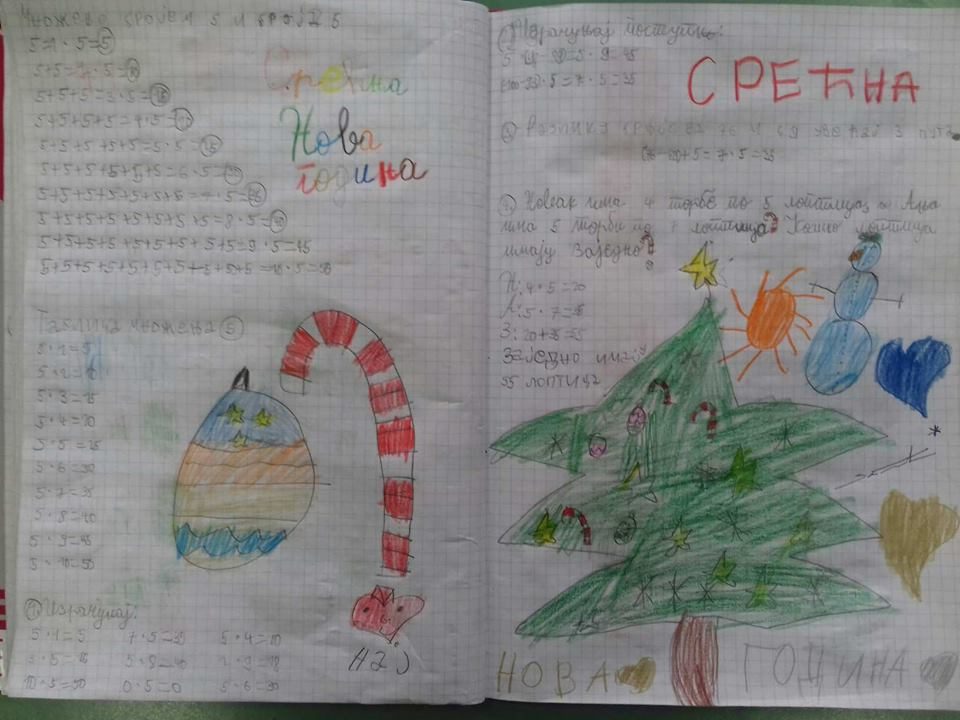 Множење бројем 5 и број 5
5=1·5=5
5+5=2·5=10
5+5+5=3·5=15
5+5+5+5=4·5=
5+5+5+5+5=5·5=25
5+5+5+5+5+5=6·5=30
5+5+5+5+5+5+5=7·5=
5+5+5+5+5+5+5+5=8·5=
5+5+5+5+5+5+5+5+5=9·5=45
5+5+5+5+5+5+5+5+5+5=10·5=50
Срећна
Нова
година
Таблица множења 5
5·1=5
5·2=10
5·3=15
5·4=20
5·5=25
5·6=30
5·7=35
5·8=40
5·9=45
5·10=50
1 Израчунај:
5·1=5 7·5=35 5·4=
3·5=15 5·8=40 2·9=18
10·5=50 0·5=0 5·6=30
Израчунај поступно:
·9=45
·5=7·5=35
СРЕЋНА
Разлику бројева 76 и 69 увећај пута
·5=7·5=35
Новак има 4 торбе по 5 лоптица а Ања
има 5 торби по 7 лоптица? Колко лоптица
имају заједно?
Н: 4·5=20
А: 5·7=35
З: 20+35=55
Заједно имају
55 лоптица
НОВА ГОДИНА